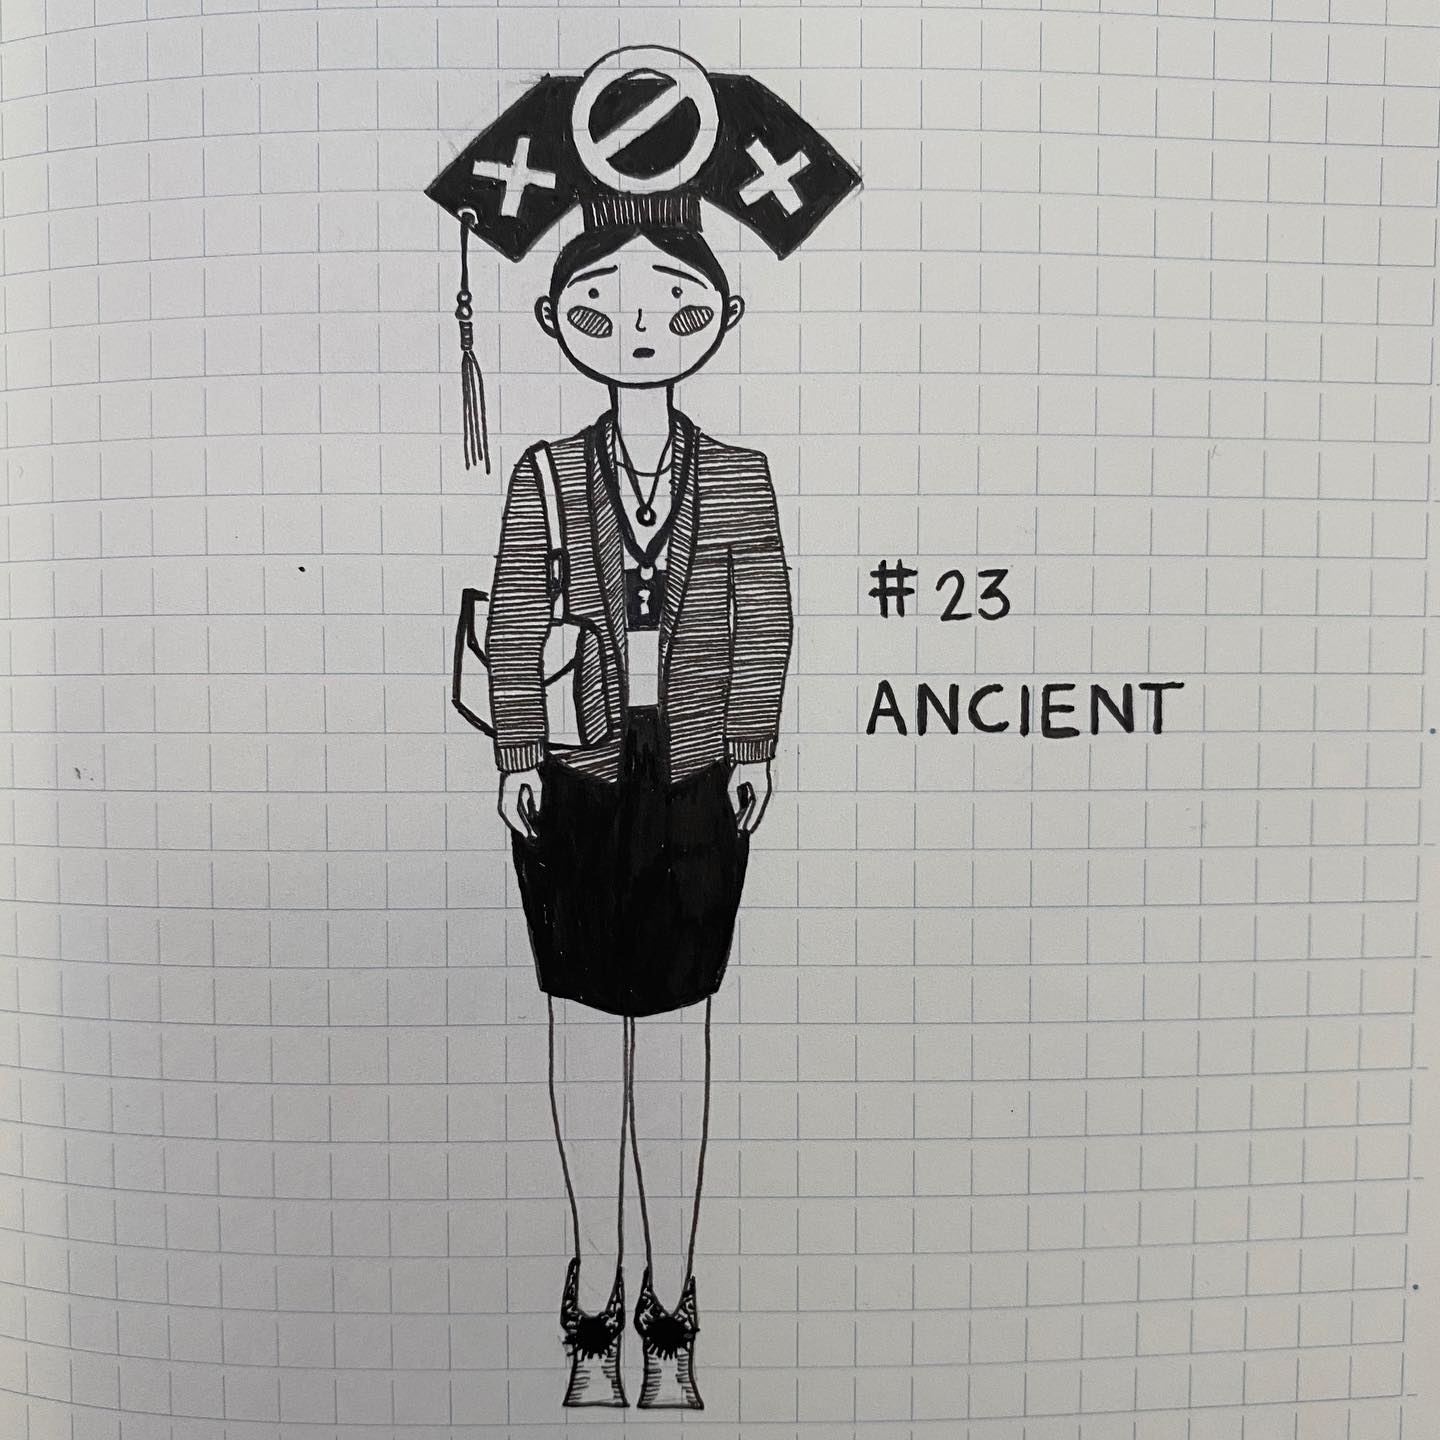 # 23
ANCIENT